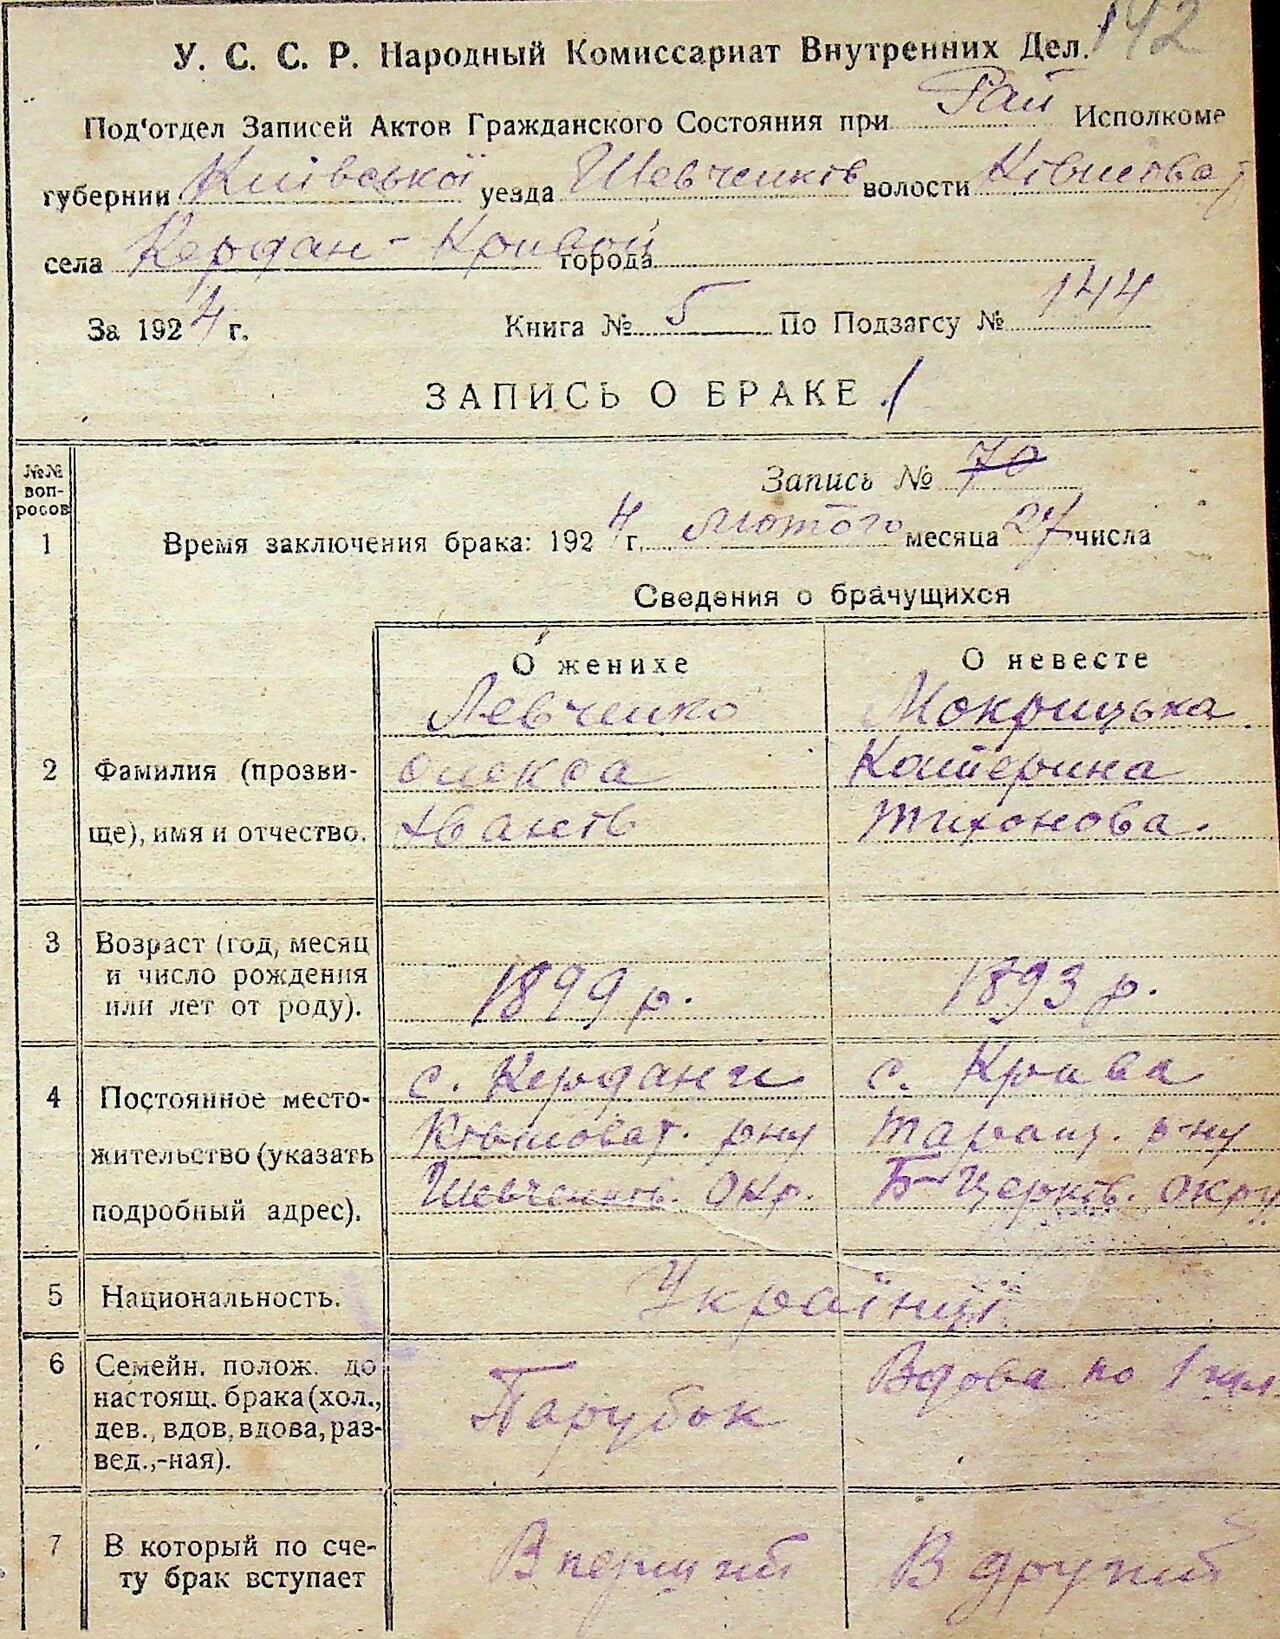 192
У. С. С. Р. Народный Комиссариат Внутренних Дел.
Под'отдел Записей Актов Гражданского Состояния при Рай Исполкоме
губернии Київської уезда Шевченків волости
села Кердан-Кривой города
За 1924 г. Книга № 5 По Подзагсу № 144
ЗАПИСЬ О БРАКЕ
Запись № 70
№№ вопросов
1 Время заключения брака: 1924 г. лютого месяца 27 числа
Сведения о брачущихся
О женихе О невесте
Левченко Мокрицька
2 Фамилия (прозви- Олекса Катерина
ще), имя и отчество. Іванів Тихонова.
3 Возраст (год, месяц
и число рождения 1899 р. 1893 р.
или лет от роду).
с. Кердани с. Крива
4 Постоянное место-
жительство (указать рну Таращ. р-ну
подробный адрес). Шевченків. Окр. Б-Церків. округ
5 Национальность. Українці
6 Семейн. полож. до Вдова по 1
настоящ. брака (хол., Парубок
дев., вдов, вдова, раз-
вед.,-ная).
7 В который по сче- В перший В другий
ту брак вступает